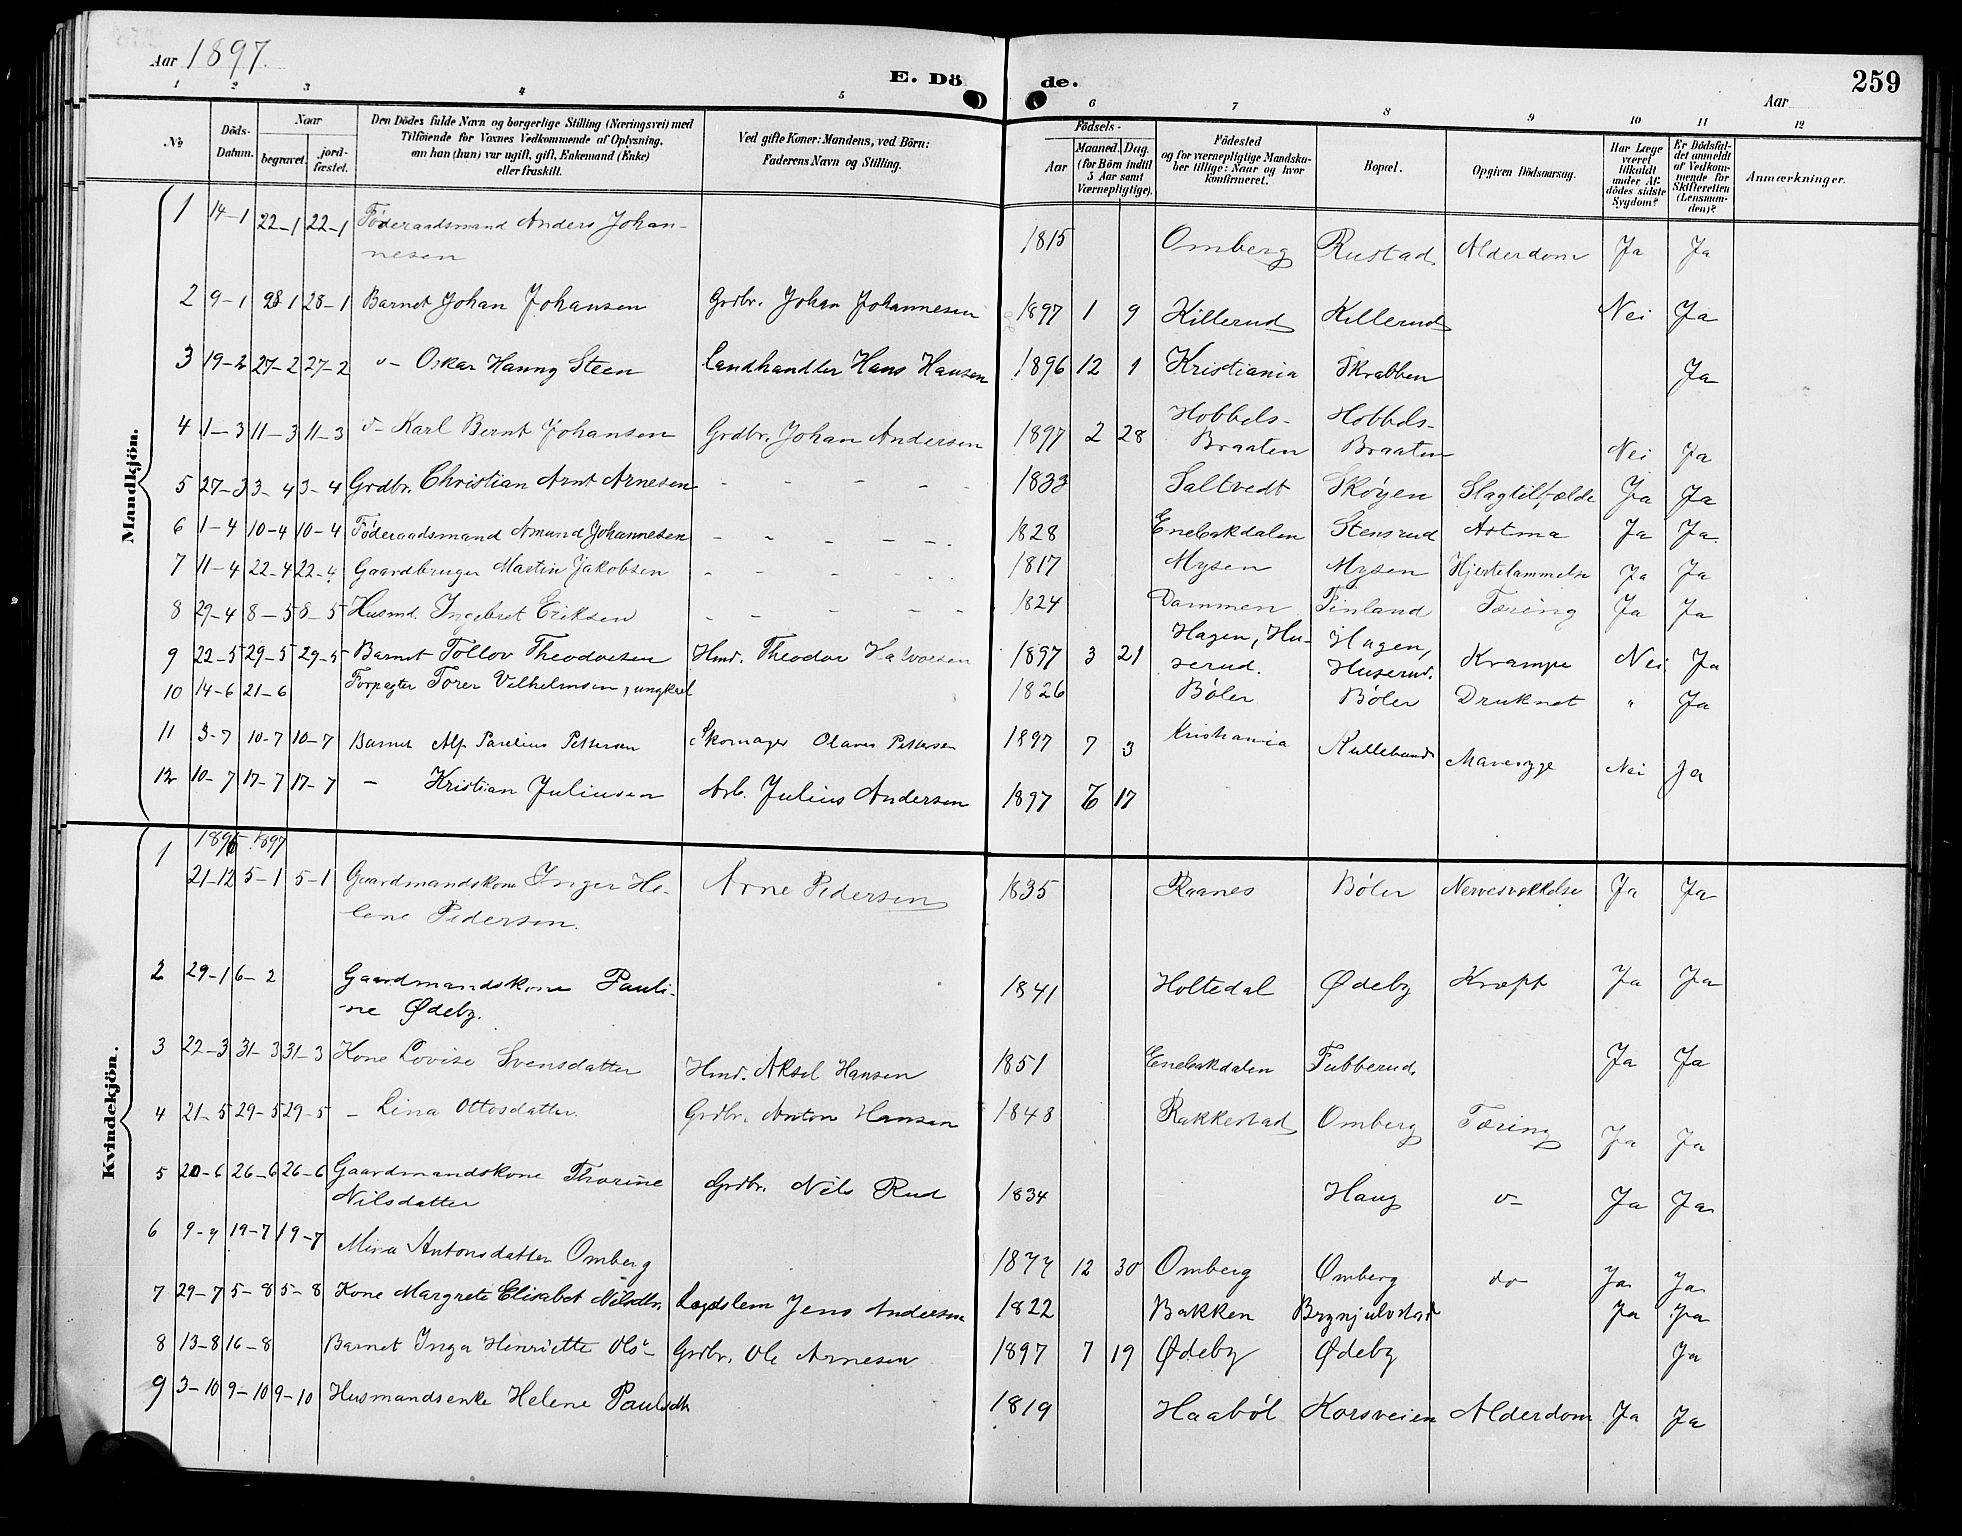 Aar 1897.
E. Döde.
Aar
259
1 2 3 4 5 6 7 8 9 10 11 12
No
Döds-Datum.
Naar
begravet.
jord-fæstet.
Den Dödes fulde Navn og borgerlige Stilling (Næringsvei) med
Tilföiende for Voxnes Vedkommende af Oplysning,
om han (hun) var ugift, gift, Enkemand (Enke)
eller fraskilt.
Ved gifte Koner: Mandens, ved Börn:
Faderens Navn og Stilling.
Födsels-
Aar
Maaned. Dag.
(for Börn indtil
5 Aar samt
Værnepligtige).
Födested
og for værnepligtige Mandsku-
ber tillige: Naar og hvor
konfirmeret.
Bopæl.
Opgiven Dödsaarsag.
Har Læge
været
tilkaldt
under Af-
dödes sidste
Sygdom?
Er Dödsfal-
det anmeldt
af Vedkom-
mende for
Skifteretten
(Lensman-
den)?
Anmærkninger.
Mandkjön.
1 14-1 22-1 22-1 Föderaadsmand Anders Johan-
nesen 1815 Omberg Rustad Alderdom Ja Ja
2 9-1 28-1 28-1 Barnet Johan Johansen Grdbr. Johan Johannesen 1897 1 9 Killerud Killerud Nei Ja
3 19-2 27-2 27-2 v- Oskar Hanny Steen Landhandler Hans Hansen 1896 12 1 Kristiania Skrabben Ja
4 1-3 11-3 11-3 v- Karl Bernt Johansen Grdbr. Johan Andersen 1897 2 28 Hobbels-
Braaten Hobbels-
Braaten Nei Ja
5 27-3 3-4 3-4 Grdbr. Christian Arnt Arnesen - - - - - 1833 Saltvedt Skøyen Slagtilfælde Ja Ja
6 1-4 10-4 10-4 Føderaadsmand Amund Johannesen - - - - - 1828 Enebakdalen Stensrud Astma Ja Ja
7 11-4 22-4 22-4 Gaardbruger Martin Jakobsen - - - - 1817 Mysen Mysen Hjertelammelse Ja Ja
8 29-4 8-5 8-5 Husmd. Ingebret Eriksen - - - - - 1824 Dammen Finland Tæring Ja Ja
9 22-5 29-5 29-5 Barnet Tollov Theodorsen Hmd. Theodor Halvorsen 1897 3 21 Hagen, Hu-
serud. Hagen,
Huserud. Krampe Nei Ja
10 14-6 21-6 Forpagter Torer Vilhelmsen, ungkarl 1826 Bøler Bøler Druknet " Ja
11 3-7 10-7 10-7 Barnet Alf Paulius Pettersen Skomager Olaves Pettersen 1897 7 3 Kristiania Kullebund Mavesyge Nei Ja
12 10-7 17-7 17-7 - Kristian Juliusen Arb. Julius Andersen 1897 6 17
Kvindekjön.
1896 1897
1 21-12 5-1 5-1 Gaardmandskone Inger He-
lene Pedersen. Arne Pedersen 1835 Raanes Bøler Nervesvækkelse Ja Ja
2 29-1 6-2 Gaardmandskone Pauli-
ne Ødeby. 1841 Holtedal Ødeby Kræft Ja Ja
3 22-3 31-3 31-3 Kone Lovise Svensdatter Hmd. Aksel Hansen 1851 Enebakdalen Tubberud. Ja Ja
4 21-5 29-5 29-5 - Lina Ottosdatter. Grdbr. Anton Hansen 1848 Rakkestad Omberg Tæring Ja Ja
5 20-6 26-6 26-6 Gaardmandskone Thorine
Nilsdatter Grdbr. Nils Rud 1834 Haug v- Ja Ja
6 9-7 19-7 19-7 Mina Antonsdatter Omberg 1877 12 30 Omberg Omberg do Ja Ja
7 29-7 5-8 5-8 Kone Margrete Elisabet Nilsdtr. Lægdslem Jens Andersen 1822 Bakken Brynjulvstad Ja Ja
8 13-8 16-8 Barnet Inga Henriette Ols- Grdbr. Ole Arnesen 1897 7 19 Ødeby Ødeby Ja
9 3-10 9-10 9-10 Husmandsenke Helene Paulsdtr 1819 Haabøl Korsveien Alderdom Ja Ja